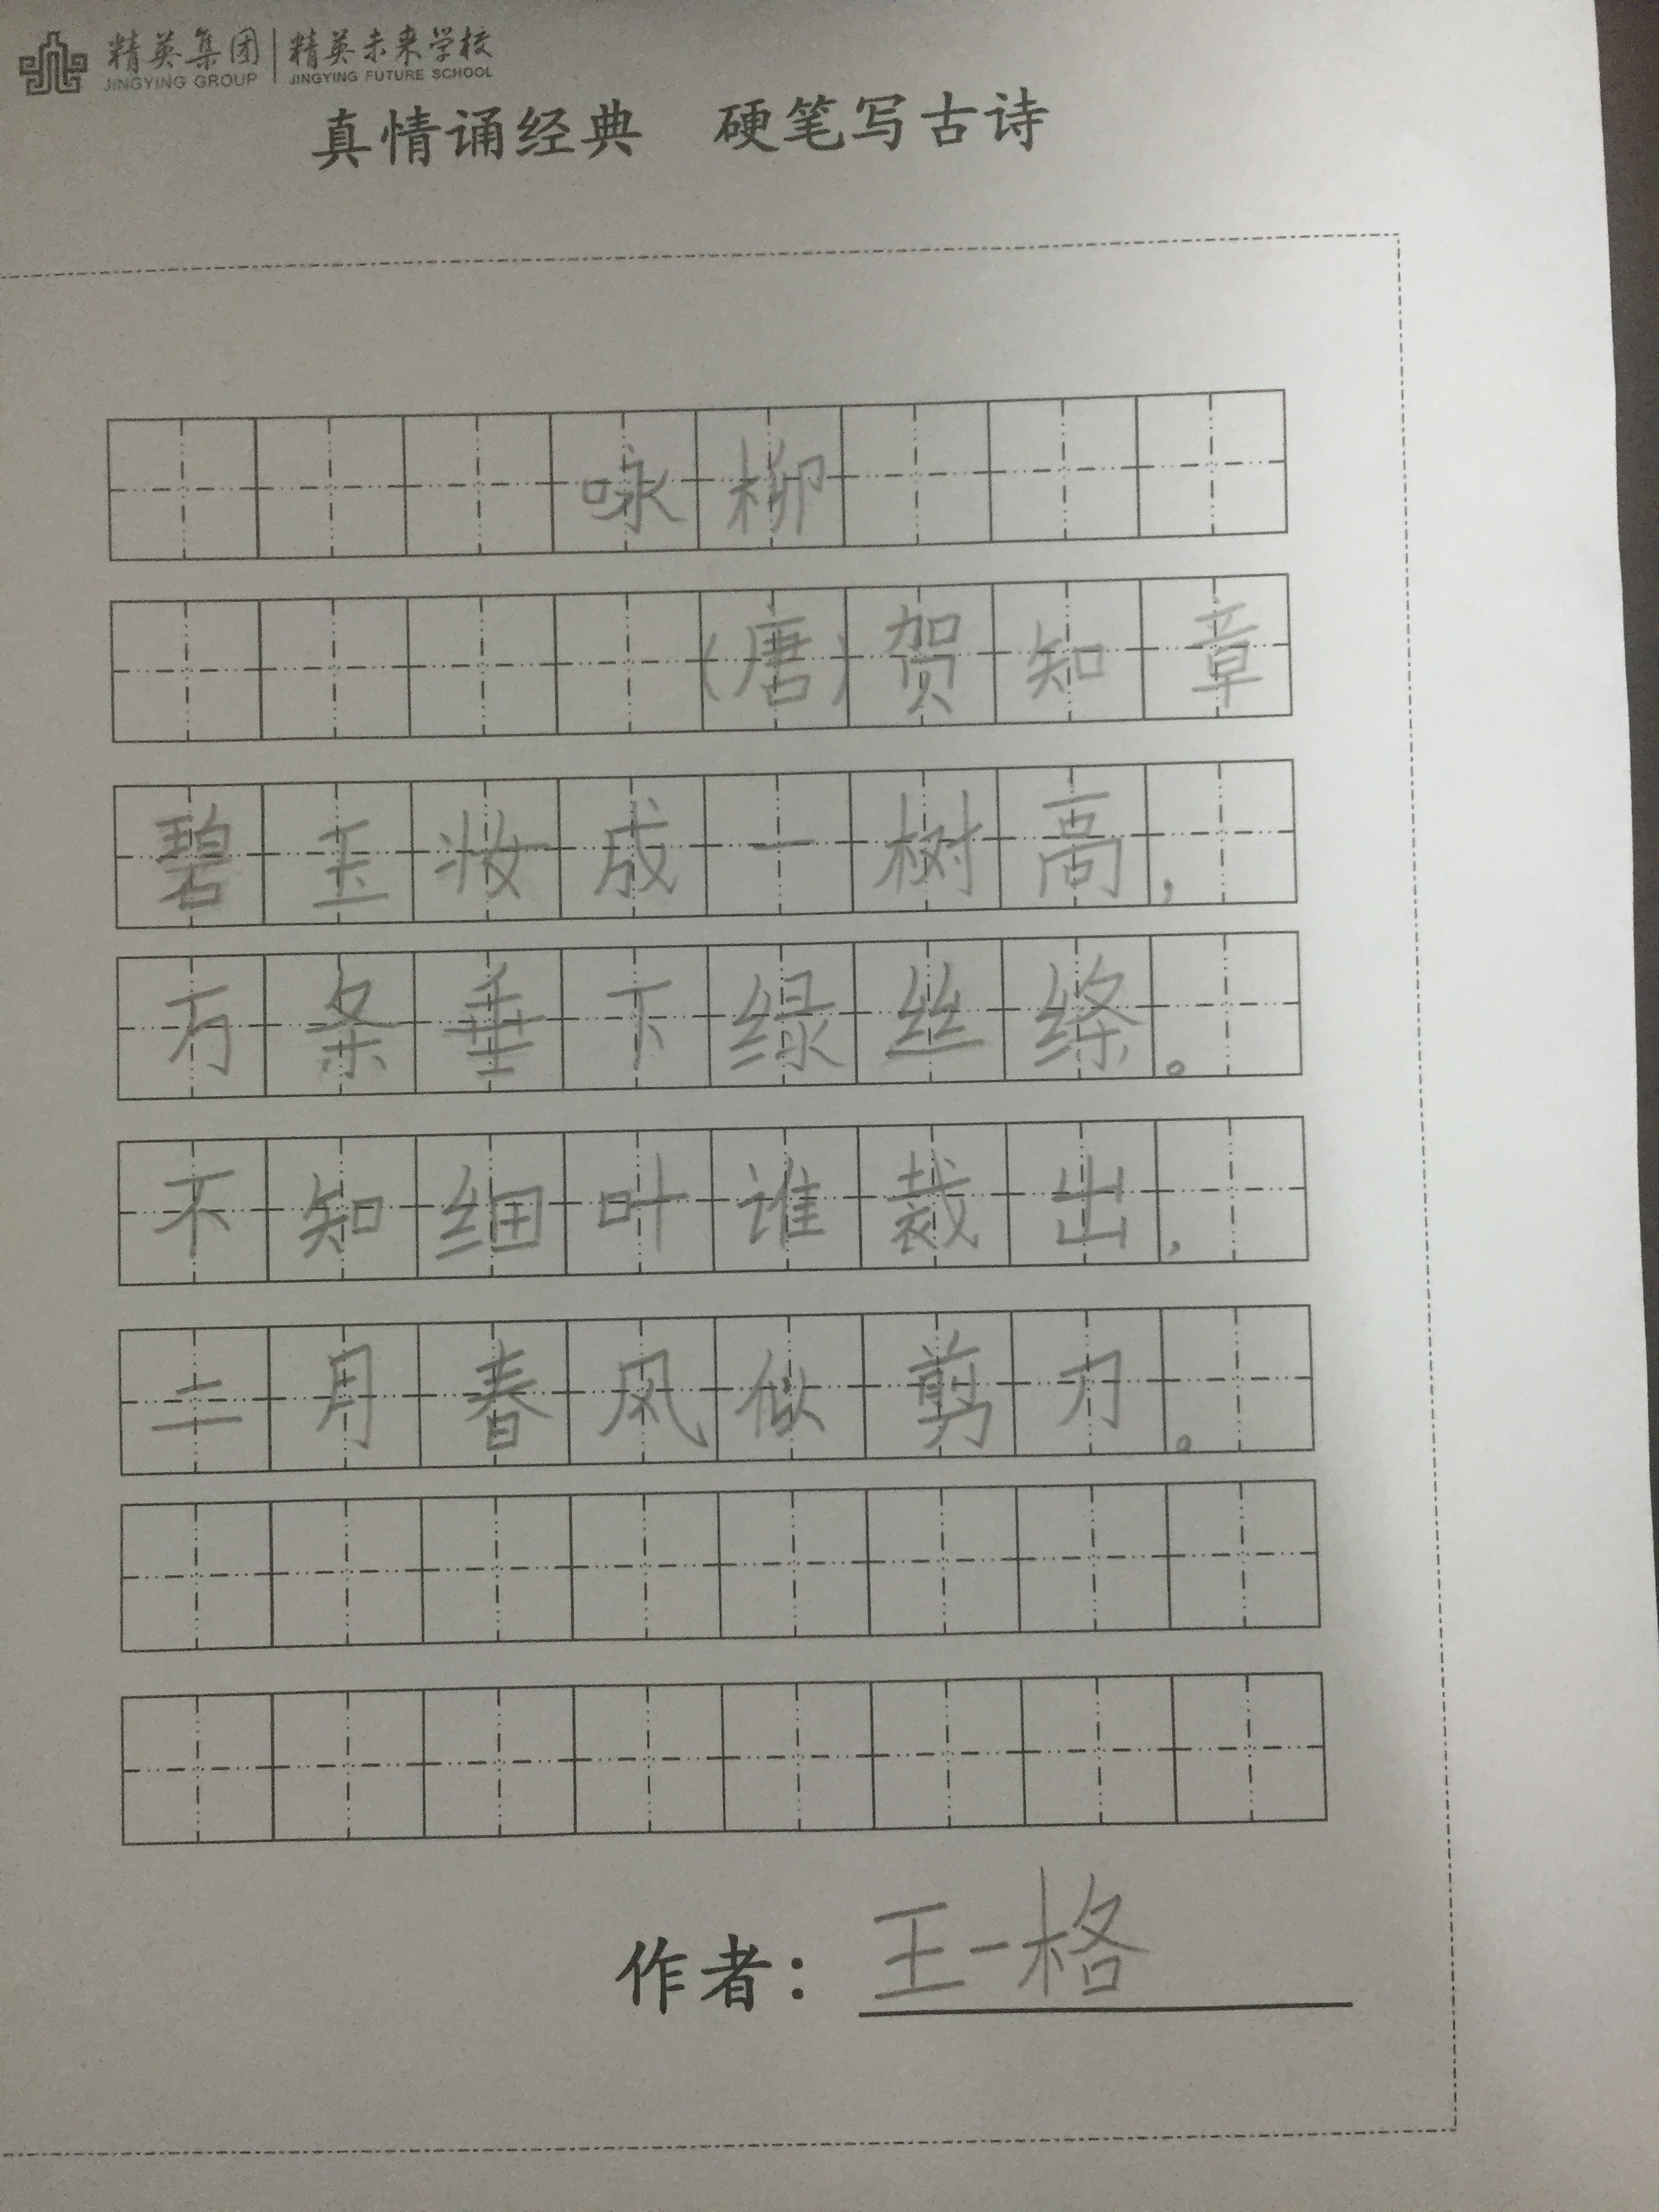 精英集团 | 精英未来学校
JINGYING GROUP | JINGYING FUTURE SCHOOL
真情诵经典 硬笔写古诗
咏柳
(唐)贺知章
碧玉妆成一树高,
万条垂下绿丝绦。
不知细叶谁裁出,
二月春风似剪刀。
作者:王一格